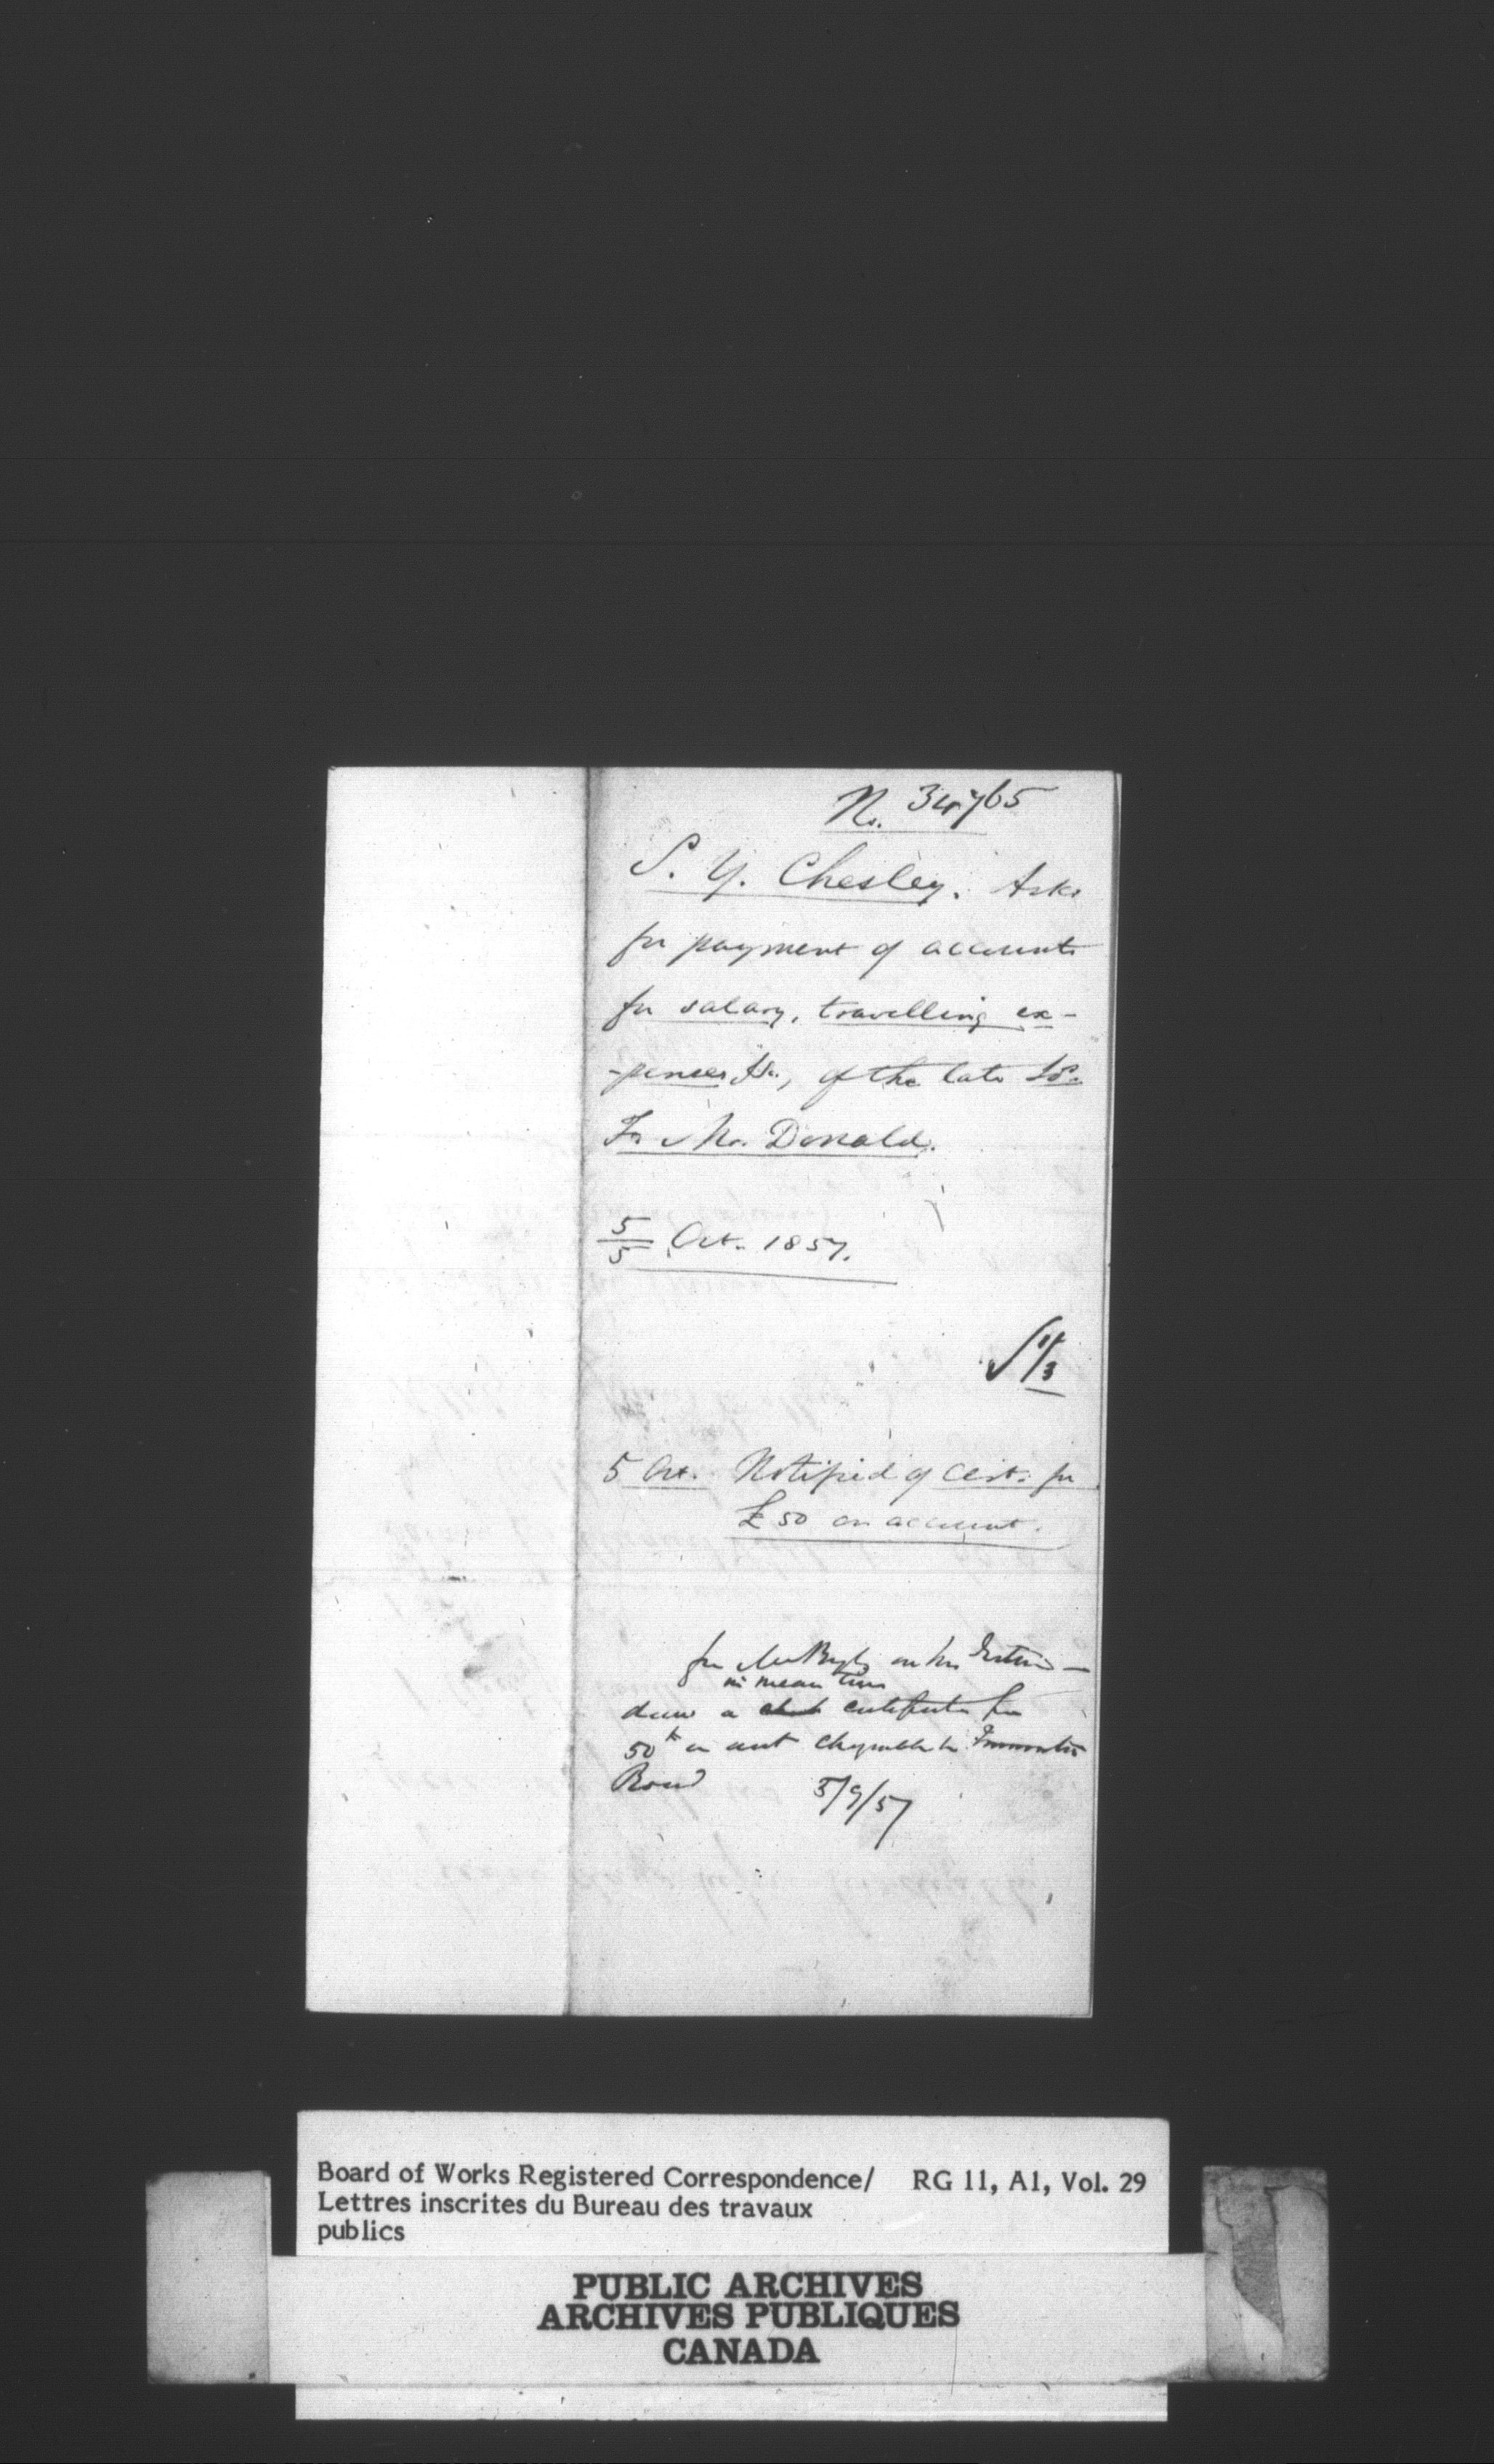 No. 34765
S. Y. Chesley. Asks
for payment of accounts
for salary, travelling ex-
-penses &c., of the late
Mc. Donald.
5/5 Oct. 1857.
5 Oct. Notified of Cert: for
£50 on account.
for on his
in mean time
draw a certificate for
50 on acct
Road 5/9/57
Board of Works Registered Correspondence/ RG 11, A1, Vol. 29
Lettres inscrites du Bureau des travaux
publics
PUBLIC ARCHIVES
ARCHIVES PUBLIQUES
CANADA